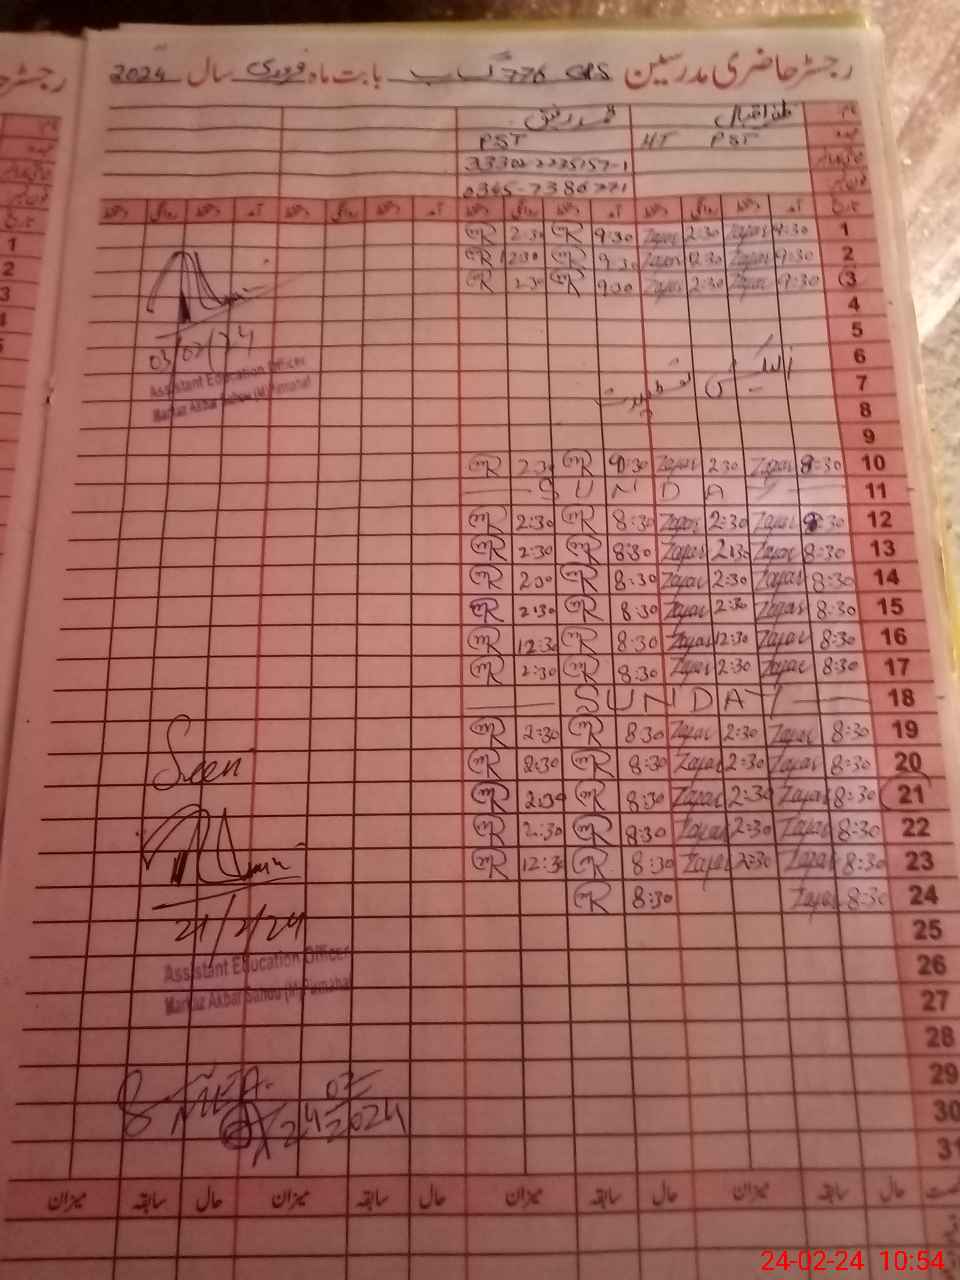 رجسٹر حاضری مدرسین GPS 776 گ ب بابت ماہ فروری سال 2024
ظفر اقبال
PST HT PST
33302-2235157-1
0345-7386771
آمد دستخط روانگی دستخط آمد دستخط روانگی دستخط آمد دستخط روانگی دستخط آمد دستخط روانگی دستخط
1 9:30 Zafar 2:30 Zafar 9:30 MR 2:30 MR
2 9:30 Zafar 12:30 Zafar 9:30 MR 12:30 MR
3 9:30 Zafar 2:30 Zafar 9:30 MR 2:30 MR
4
03/02/24
5
Assistant Education Officer
6
7
8
9
10 8:30 Zafar 2:30 Zafar 9:30 MR 2:30 MR
11 SUNDAY
12 8:30 Zafar 2:30 Zafar 8:30 MR 2:30 MR
13 8:30 Zafar 2:30 Zafar 8:30 MR 2:30 MR
14 8:30 Zafar 2:30 Zafar 8:30 MR 2:30 MR
15 8:30 Zafar 2:30 Zafar 8:30 MR 2:30 MR
16 8:30 Zafar 12:30 Zafar 8:30 MR 12:30 MR
17 8:30 Zafar 2:30 Zafar 8:30 MR 2:30 MR
18 SUNDAY
19 8:30 Zafar 2:30 Zafar 8:30 MR 2:30 MR
20 8:30 Zafar 2:30 Zafar 8:30 MR 2:30 MR
Seen
21 8:30 Zafar 2:30 Zafar 8:30 MR 2:30 MR
22 8:30 Zafar 2:30 Zafar 8:30 MR 2:30 MR
23 8:30 Zafar 2:30 Zafar 8:30 MR 12:30 MR
24 8:30 Zafar 8:30 MR
21/2/24
25
Assistant Education Officer
26
Markaz Akbar Sahou (M) Pirmahal
27
28
29
30
24 02 2024
31
حال سابقہ میزان حال سابقہ میزان حال سابقہ میزان حال سابقہ میزان
24-02-24 10:54